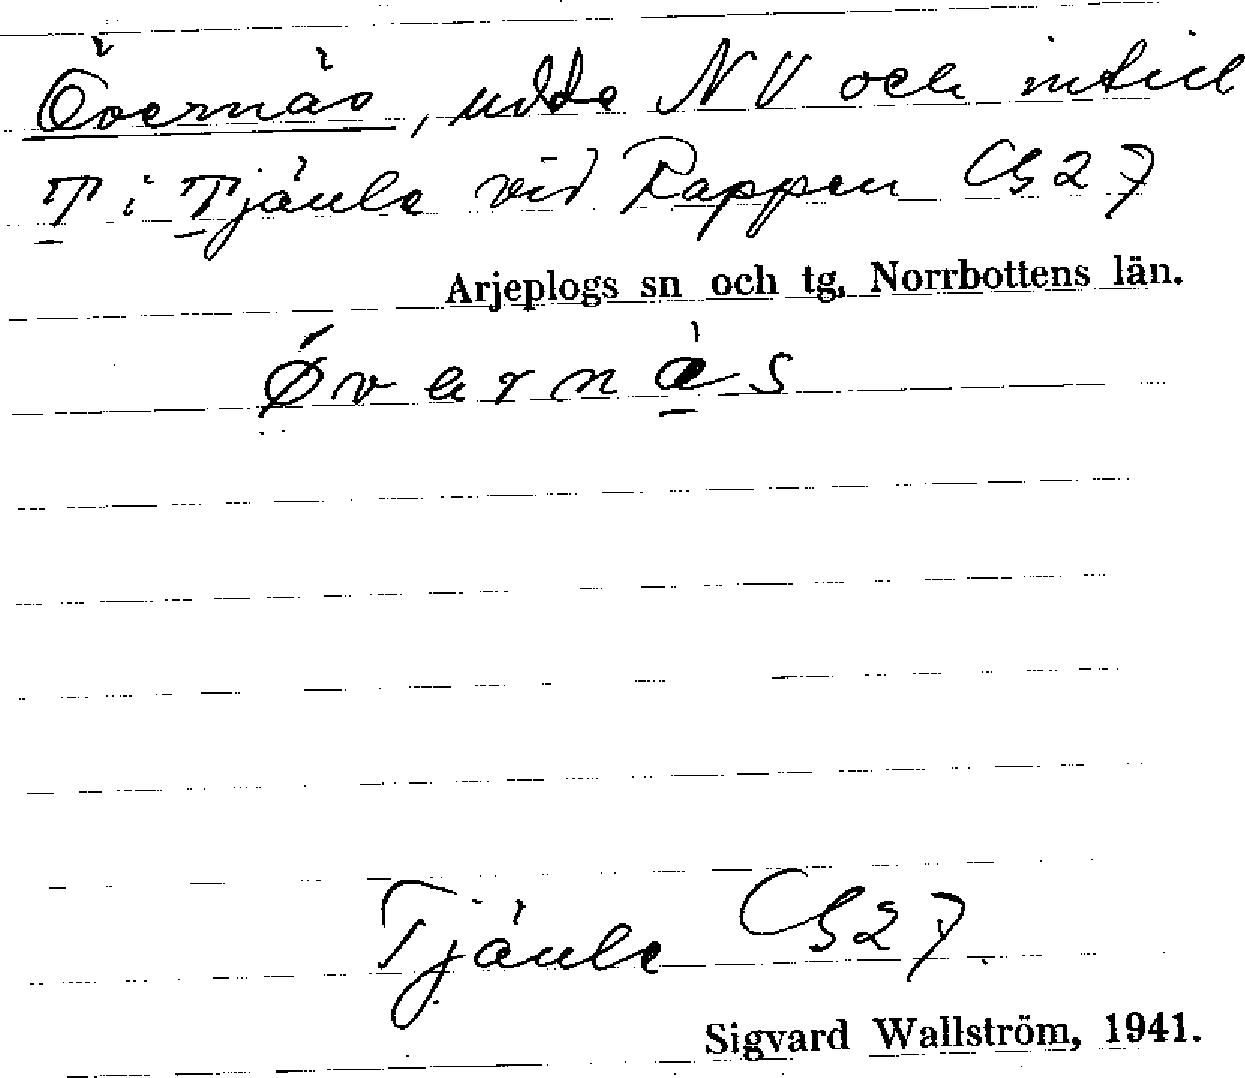 Övernäs, udde NV och intill
T i Tjäule vid Rappen C527
Arjeplogs sn och tg, Norrbottens län.
Øvernäs
Tjäule C527
Sigvard Wallström, 1941.